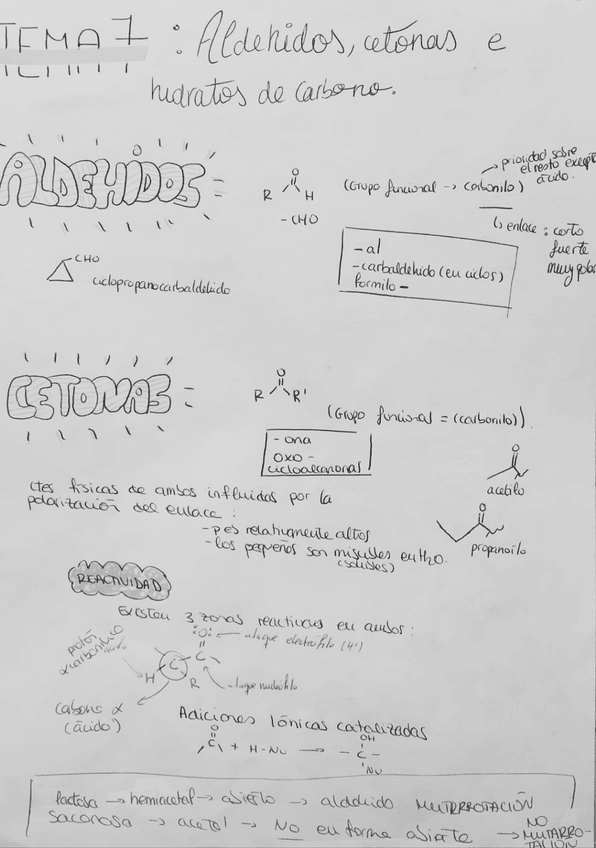 TEMA 7 : Aldehidos, cetonas e
hidratos de carbono.
ALDEHIDOS
O
R H
- CHO
(Grupo funcional → carbonilo)
→ prioridad sobre
el resto excepto
ácido.
↳ enlace : corto
fuerte
muy polar
- al
- carbaldehido (en ciclos)
formilo -
CHO
ciclopropanocarbaldehido
CETONAS
O
R R'
(Grupo funcional = (carbonilo)).
- ona
oxo -
cicloalcanonas
O
acetilo
O
propanoilo
ctes físicas de ambos influidas por la
polarización del enlace :
- pes relativamente altos
- los pequeños son miscibles en H2O.
(solubles)
REACTIVIDAD
Existen 3 zonas reactivas en ambos :
:O: ataque electrófilo (H+)
protón
α carbonílico
H C C
R
ataque nucleófilo
carbono α
(ácido)
Adiciones iónicas catalizadas
O OH
C + H-Nu → - C -
Nu
lactosa → hemiacetal → abierto → aldehido MUTARROTACIÓN
sacarosa → acetal → NO en forma abierta → NO
MUTARRO-
TACIÓN